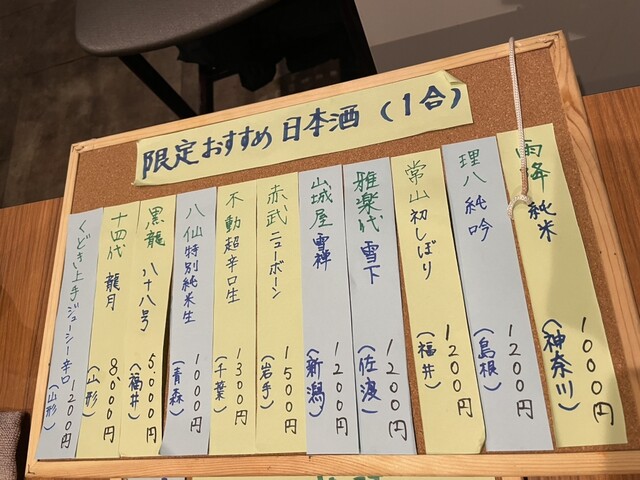 限定おすすめ日本酒(1合)
雨降 純米 1000円 (神奈川)
理八 純吟 1200円 (島根)
常山 初しぼり 1200円 (福井)
雅楽代 雪下 1200円 (佐渡)
山城屋 雪禅 1200円 (新潟)
赤武 ニューボーン 1500円 (岩手)
不動 超辛口生 1300円 (千葉)
八仙 特別純米生 1000円 (青森)
黒龍 八十八号 5,000円 (福井)
十四代 龍月 8,000円 (山形)
くどき上手 ジューシー辛口 1200円 (山形)